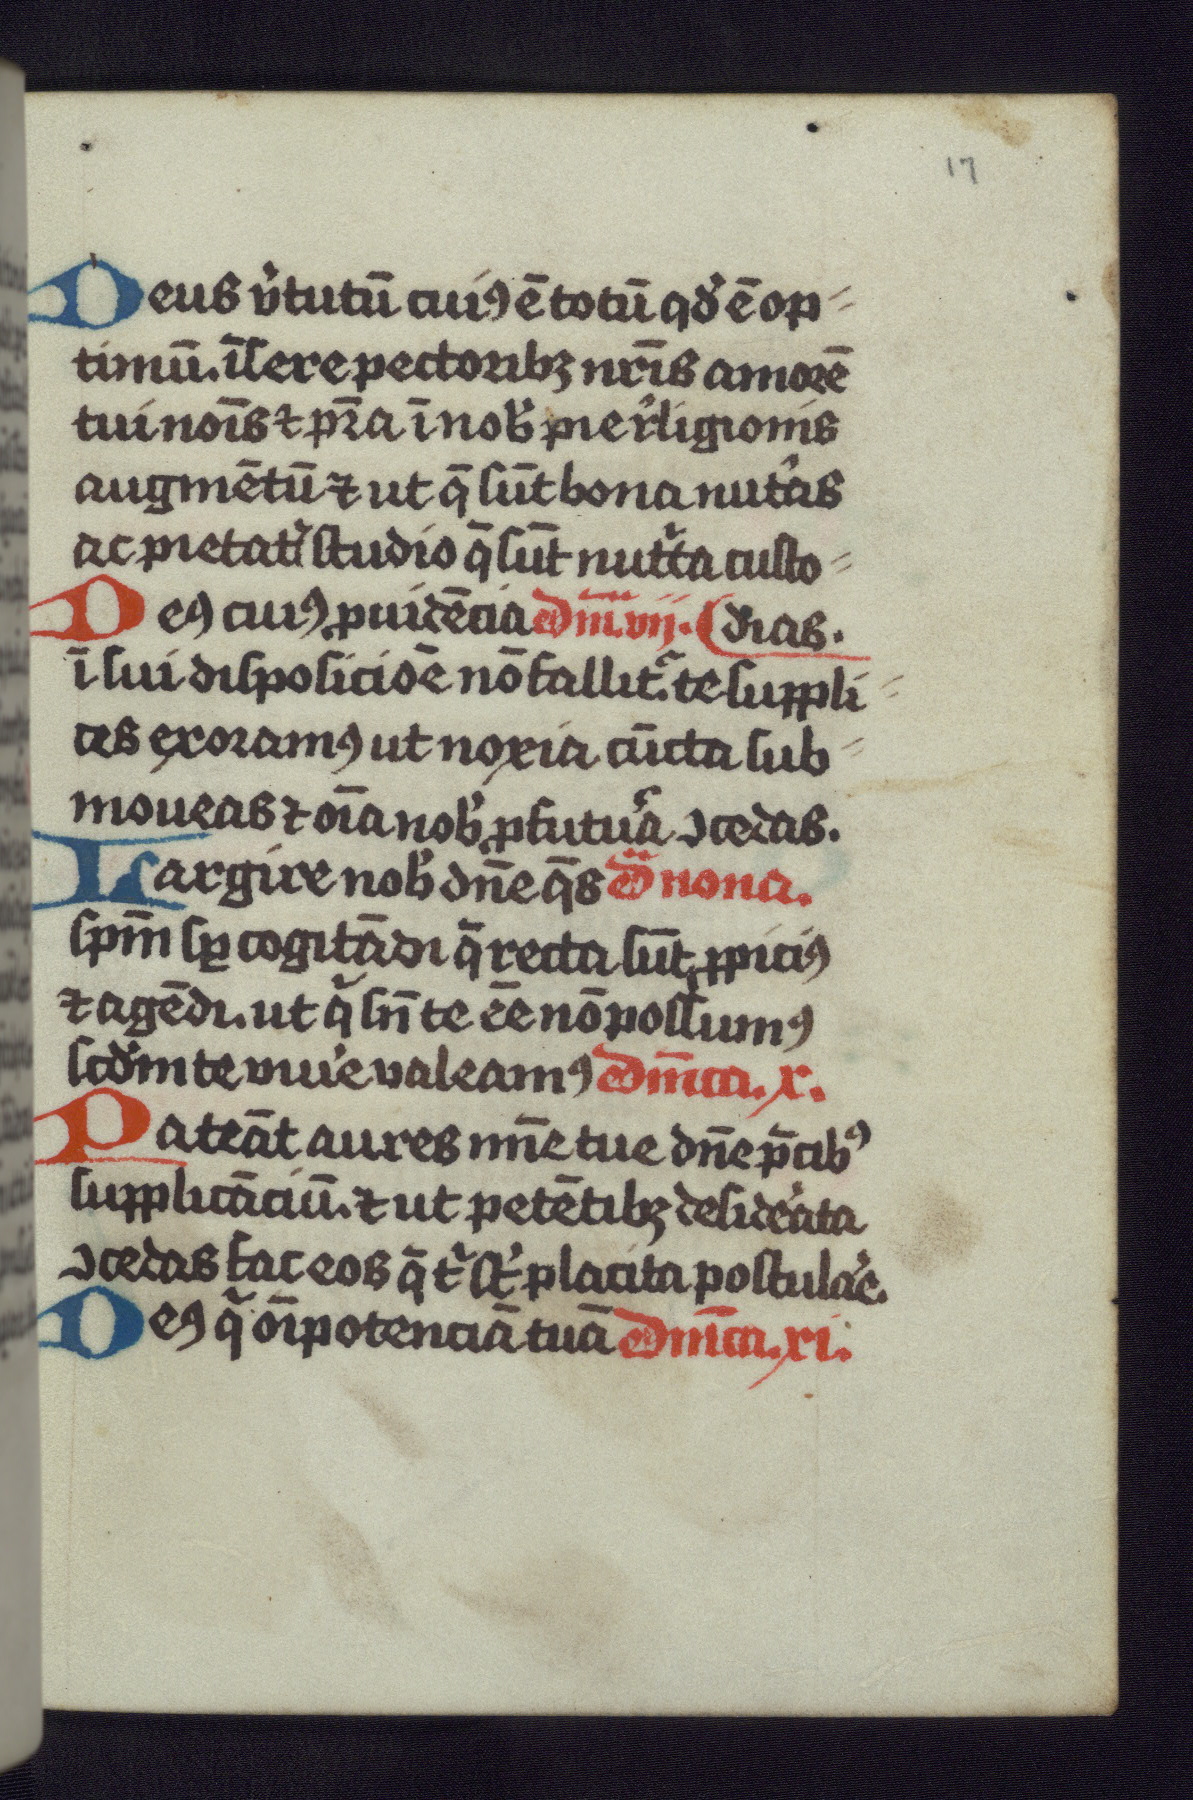 17
Deus v̾tutū cuiꝰ ē totū qđ ē op˭
timū. īsere pectoribꝫ nr̄is amorē
tui noīs ⁊ p̄ꝛa ī nob̾ pie r̾ligionis
augmētū ⁊ ut q̄ sūt bona nut̾as
ac pietat̾ studio q̄ sūt nut̾ta custo˭
Deꝰ cuiꝰ ꝓuidēcia dm̄. vij. (dias.
ī sui disposicioē nō fallit᷑. te suppli˭
ces exoramꝰ ut noxia cūcta sub˭
moueas ⁊ oīa nob̾ ꝓfutura ↄcedas.
Largire nob̾ dn̄e q̄s d̄ nona.
spm̄ sꝑ cogitādi q̄ recta sūt, ꝓpiciꝰ
⁊ agēdi. ut qͥ sn̄ te ēe nō possumꝰ
scd̾m te viu̾e valeamꝰ dm̄ica. x.
Pateāt aures mīe tue dn̄e p̄cibꝰ
supplicāciū. ⁊ ut petētibꝫ desid̾ata
ↄcedas fac eos q̄ tͥ st̾ placita postula̾e.
Deꝰ qͥ oīpotenciā tuā dm̄ica. xi.